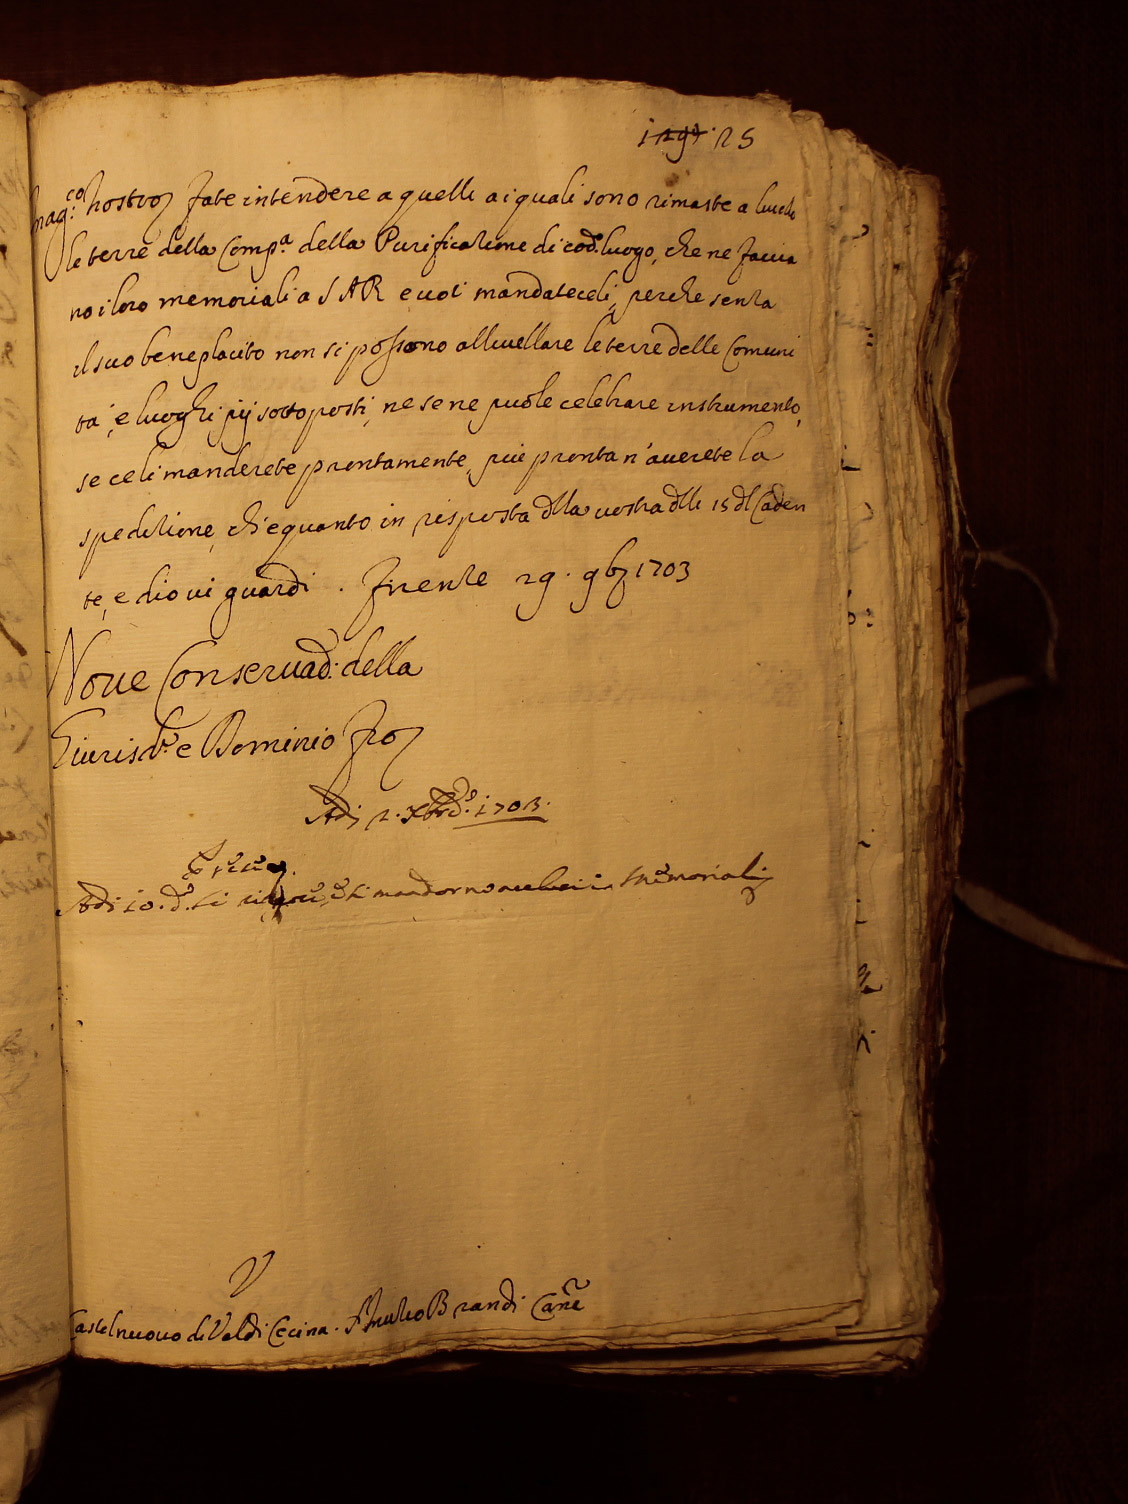 25
Mag:co nostro fate intendere a quelli a i quali sono rimaste a livello
le terre della Comp.a della Purificazione di cod.o luogo, che ne faccia
no i loro memoriali a S A R e voi mandateceli, perche senza
il suo beneplacito non si possono allivellare le terre delle Comuni
tà, e luoghi pij sottoposti, ne se ne puole celebrare instrumento,
se ce li manderete prontamente, più pronta n'averete la
spedizione, ch'è quanto in risposta dlla vostra dlli 15 dl Caden
te, e dio vi guardi . Firenze 29. 9bre 1703
Nove Conservad: della
Giurisd.e e Dominio Fior
Adi 2. Xbre d.o 1703.
Adi 10. d.o si mandorno memoriali
V
Castelnuovo di Val di Cecina. Brandi Canc.e